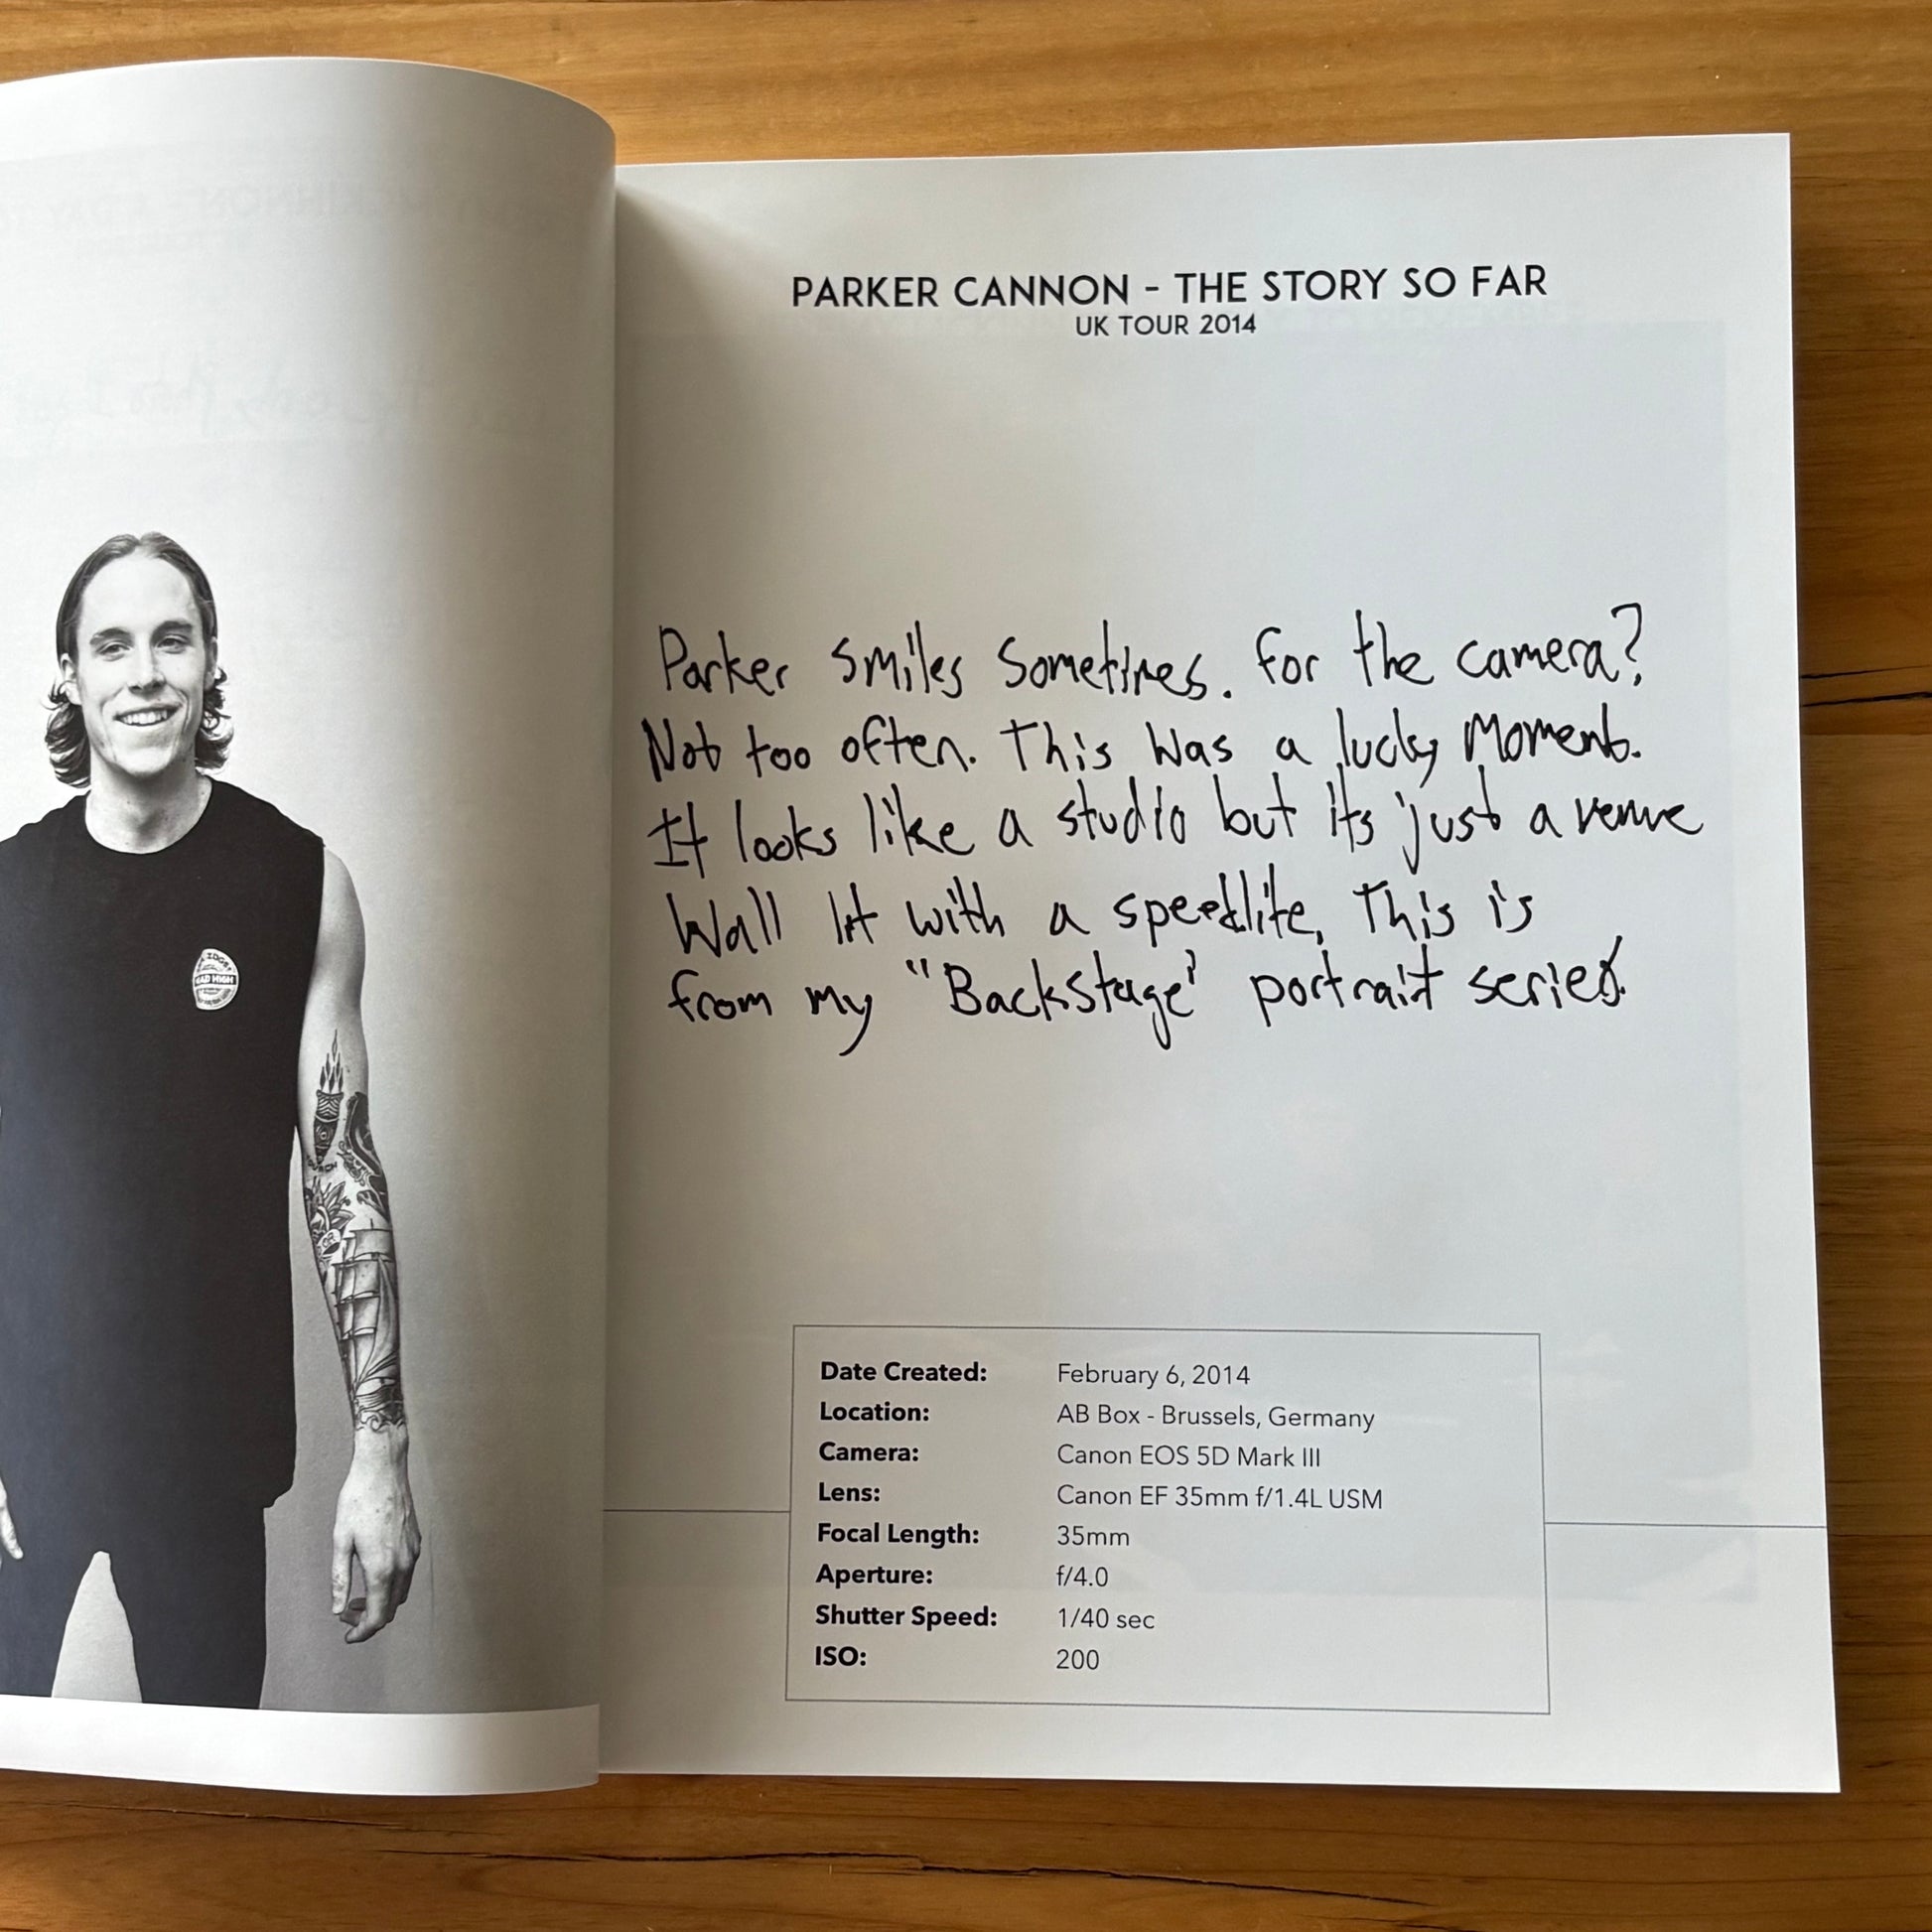 PARKER CANNON - THE STORY SO FAR
UK TOUR 2014
Parker smiles sometimes. For the camera?
Not too often. This was a lucky moment.
It looks like a studio but its just a venue
wall lit with a speedlite. This is
from my "Backstage" portrait series.
Date Created: February 6, 2014
Location: AB Box - Brussels, Germany
Camera: Canon EOS 5D Mark III
Lens: Canon EF 35mm f/1.4L USM
Focal Length: 35mm
Aperture: f/4.0
Shutter Speed: 1/40 sec
ISO: 200